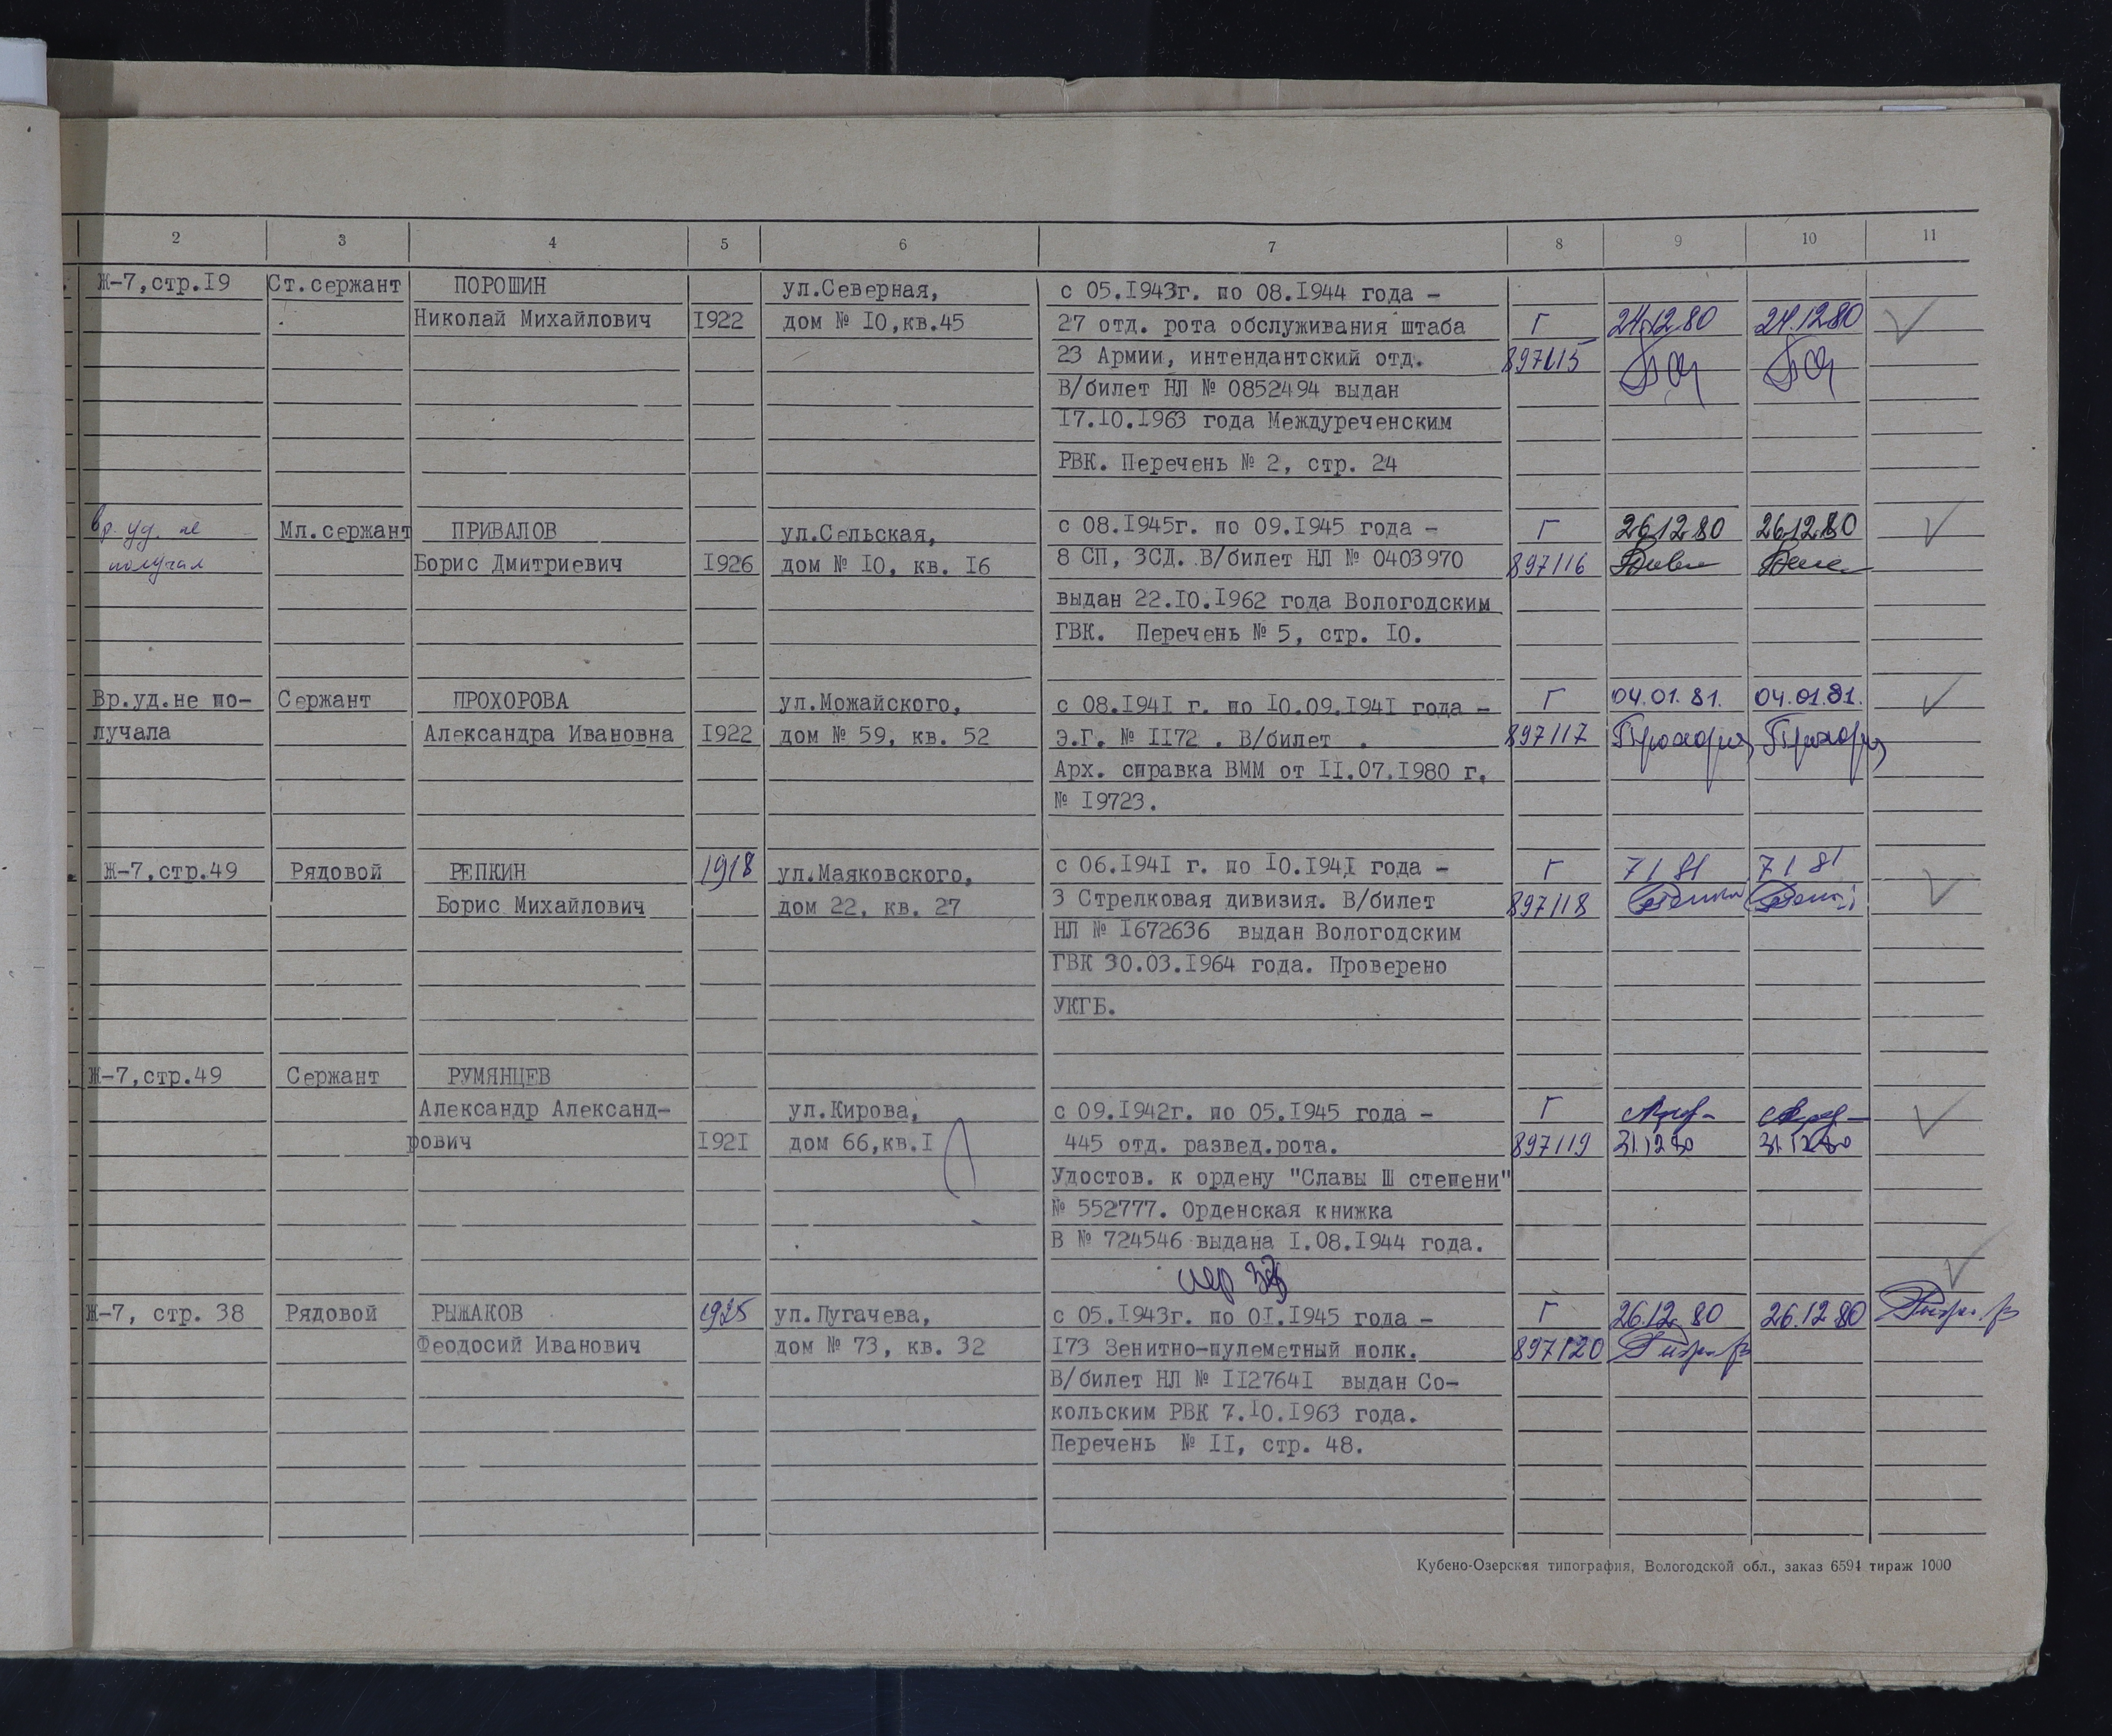 2 3 4 5 6 7 8 9 10 11
Ж-7,стр.I9 Ст.сержант ПОРОШИН ул.Северная, с 05.I943г. по 08.I944 года -
Николай Михайлович I922 дом № I0,кв.45 27 отд. рота обслуживания штаба Г 24.12.80 24.12.80
23 Армии, интендантский отд. 897115
В/билет НЛ № 0852494 выдан
I7.I0.I963 года Междуреченским
РВК. Перечень № 2, стр. 24
Вр. уд. не Мл.сержант ПРИВАЛОВ ул.Сельская, с 08.I945г. по 09.I945 года - Г 26.12.80 26.12.80
получал Борис Дмитриевич I926 дом № I0, кв. I6 8 СП, 3СД. В/билет НЛ № 0403970 897116
выдан 22.I0.I962 года Вологодским
ГВК. Перечень № 5, стр. I0.
Вр.уд.не по- Сержант ПРОХОРОВА ул.Можайского, с 08.I94I г. по I0.09.I94I года - Г 04.01.81. 04.01.81.
лучала Александра Ивановна I922 дом № 59, кв. 52 Э.Г. № II72 . В/билет . 897117
Арх. справка ВММ от II.07.I980 г.
№ I9723.
Ж-7,стр.49 Рядовой РЕПКИН 1918 ул.Маяковского, с 06.I94I г. по I0.I94I года - Г 7 1 81 7 1 81
Борис Михайлович дом 22, кв. 27 3 Стрелковая дивизия. В/билет 897118
НЛ № I672636 выдан Вологодским
ГВК 30.03.I964 года. Проверено
УКГБ.
Ж-7,стр.49 Сержант РУМЯНЦЕВ
Александр Александ- ул.Кирова, с 09.I942г. по 05.I945 года - Г
рович I92I дом 66,кв.I 445 отд. развед.рота. 897119 31.12.80 31.12.80
Удостов. к ордену "Славы Ш степени"
№ 552777. Орденская книжка
В № 724546 выдана I.08.I944 года.
Ж-7, стр. 38 Рядовой РЫЖАКОВ 1925 ул.Пугачева, с 05.I943г. по 0I.I945 года - Г 26.12.80 26.12.80
Феодосий Иванович дом № 73, кв. 32 I73 Зенитно-пулеметный полк. 897120
В/билет НЛ № II2764I выдан Со-
кольским РВК 7.I0.I963 года.
Перечень № II, стр. 48.
Кубено-Озерская типография, Вологодской обл., заказ 6594 тираж 1000